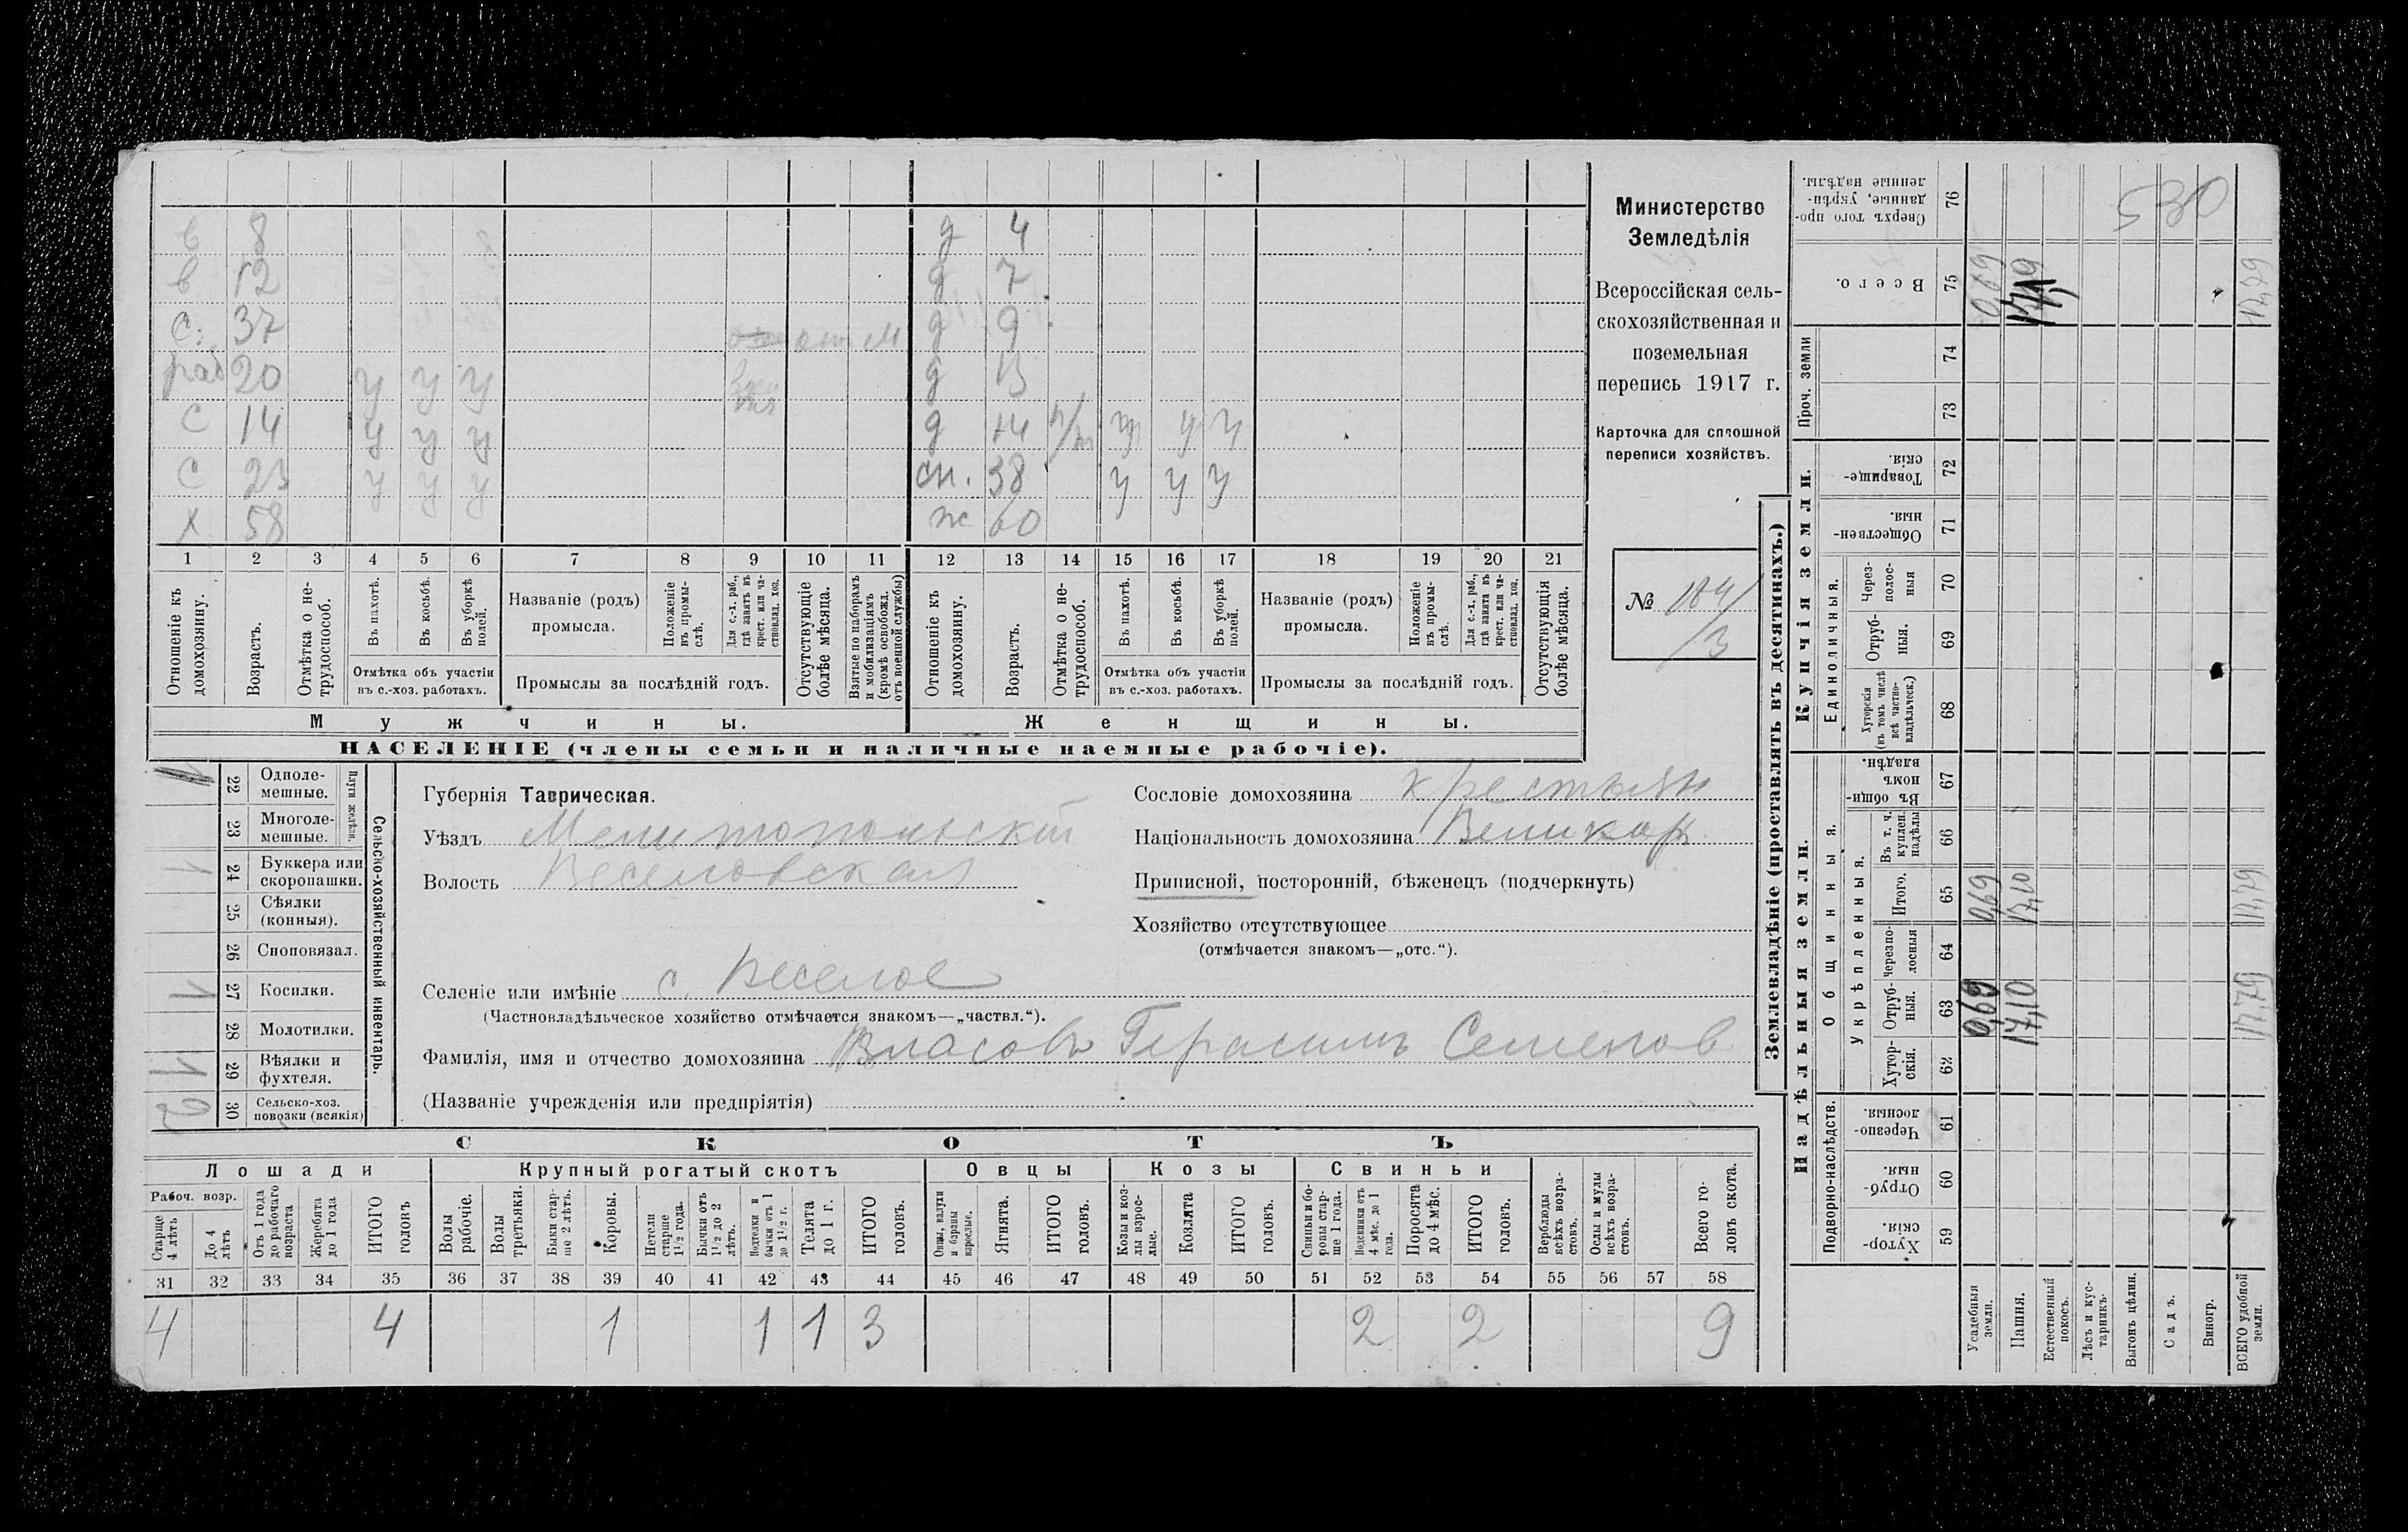 в 8 д 4
в 12 д 7
С. 37 М д 9
раб 20 у у у д 13
С 14 у у у д 14 п/т у у у
С 23 у у у сн. 38 у у у
х 58 ж 60
1 2 3 4 5 6 7 8 9 10 11 12 13 14 15 16 17 18 19 20 21
Отношеніе къ домохозяину.
Возрастъ.
Отмѣтка о нетрудоспособ.
Въ пахотѣ.
Въ косьбѣ.
Въ уборкѣ полей.
Отмѣтка объ участіи въ с.-хоз. работахъ.
Названіе (родъ) промысла.
Положеніе въ промыслѣ.
Для с.-х. раб., гдѣ занятъ въ крест. или частновлад. хоз.
Промыслы за послѣдній годъ.
Отсутствующіе болѣе мѣсяца.
Взятые по наборамъ и мобилизаціямъ (кромѣ освобожд. отъ военной службы)
Отношеніе къ домохозяину.
Возрастъ.
Отмѣтка о нетрудоспособ.
Въ пахотѣ.
Въ косьбѣ.
Въ уборкѣ полей.
Отмѣтка объ участіи въ с.-хоз. работахъ.
Названіе (родъ) промысла.
Положеніе въ промыслѣ.
Для с.-х. раб., гдѣ занята въ крест. или частновлад. хоз.
Промыслы за послѣдній годъ.
Отсутствующія болѣе мѣсяца.
Мужчины.
Женщины.
НАСЕЛЕНІЕ (члены семьи и наличные наемные рабочіе).
Министерство
Земледѣлія
Всероссійская сель-
скохозяйственная и
поземельная
перепись 1917 г.
Карточка для сплошной
переписи хозяйствъ.
№ 184/
/3
22 Одноле-
мешные.
23 Многоле-
мешные.
Плуги желѣзн.
24 Буккера или
скоропашки. 1
25 Сѣялки
(конныя).
26 Сноповязал.
27 Косилки. 1
28 Молотилки.
29 Вѣялки и
фухтеля. 1
30 Сельско-хоз.
повозки (всякія) 2
Сельско-хозяйственный инвентарь.
Губернія Таврическая.
Уѣздъ Мелитопольскій
Волость Веселовская
Сословіе домохозяина крестьян
Національность домохозяина Великор.
Приписной, посторонній, бѣженецъ (подчеркнуть)
Хозяйство отсутствующее
(отмѣчается знакомъ—„отс.“).
Селеніе или имѣніе с. Веселое
(Частновладѣльческое хозяйство отмѣчается знакомъ—„частвл.“).
Фамилія, имя и отчество домохозяина Власовъ Герасимъ Семенов
(Названіе учрежденія или предпріятія)
СКОТЪ
Лошади Крупный рогатый скотъ Овцы Козы Свиньи
Рабоч. возр.
Старше 4 лѣтъ
До 4 лѣтъ
Отъ 1 года до рабочаго возраста
Жеребята до 1 года
ИТОГО головъ
Волы рабочіе.
Волы третьяки.
Быки старше 2 лѣтъ.
Коровы.
Нетели старше 1½ года.
Бычки отъ 1½ до 2 лѣтъ.
Подтелки и бычки отъ 1 до 1½ г.
Телята до 1 г.
ИТОГО головъ.
Овцы, валухи и бараны взрослые.
Ягнята.
ИТОГО головъ.
Козы и козлы взрослые.
Козлята
ИТОГО головъ.
Свиньи и боровы старше 1 года.
Подсвинки отъ 4 мѣс. до 1 года.
Поросята до 4 мѣс.
ИТОГО головъ.
Верблюды всѣхъ возрастовъ.
Ослы и мулы всѣхъ возрастовъ.
Всего головъ скота.
31 32 33 34 35 36 37 38 39 40 41 42 43 44 45 46 47 48 49 50 51 52 53 54 55 56 57 58
4 4 1 1 1 3 2 2 9
Землевладѣніе (проставлять въ десятинахъ.)
Купчія земли.
Надѣльныя земли.
Сверхъ того проданные, укрѣпленные надѣлы. 76
530
Всего. 75 0,69 17,10 17,79
Проч. земли 74 73
Товарищескія. 72
Общественныя. 71
Единоличныя.
Черезполосныя 70
Отрубныя. 69
Хуторскія (въ томъ числѣ всѣ частновладѣльческ.) 68
Общинныя.
Въ общинномъ владѣн. 67
Укрѣпленныя.
Въ т. ч. куплен. надѣлы 66
Итого. 65 0,69 17,10 17,79
Черезполосныя 64
Отрубныя. 63 0,69 17,10 17,79
Хуторскія. 62
Подворно-наслѣдств.
Черезполосныя. 61
Отрубныя. 60
Хуторскія. 59
Усадебныя земли.
Пашня.
Естественный покосъ.
Лѣсъ и кустарникъ.
Выгонъ цѣлин.
Садъ.
Виногр.
ВСЕГО удобной земли.